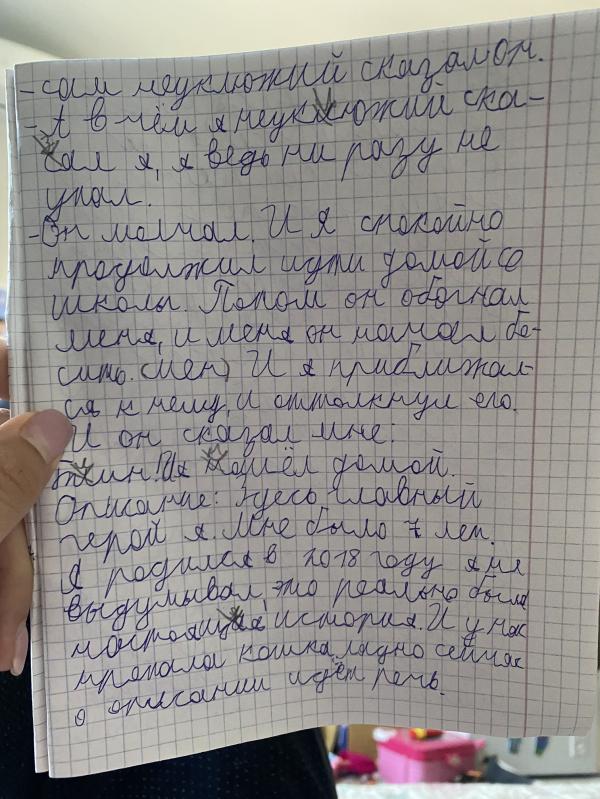 -сам неуклюжий сказал он.
-А в чём я неуклюжий ска-
зал я, я ведь ни разу не
упал.
-Он молчал. И я спокойно
продолжил идти домой со
школы. Потом он обогнал
меня, и меня он начал бе-
сить. (мен) И я приближал-
ся к нему, и оттолкнул его.
И он сказал мне:
И я пошёл домой.
Описание: Здесь главный
герой я. Мне было 7 лет.
Я родился в 2018 году я не
выдумывал это реально была
настоящая история. И у нас
пропала кошка ладно сейчас
о описании идёт речь.